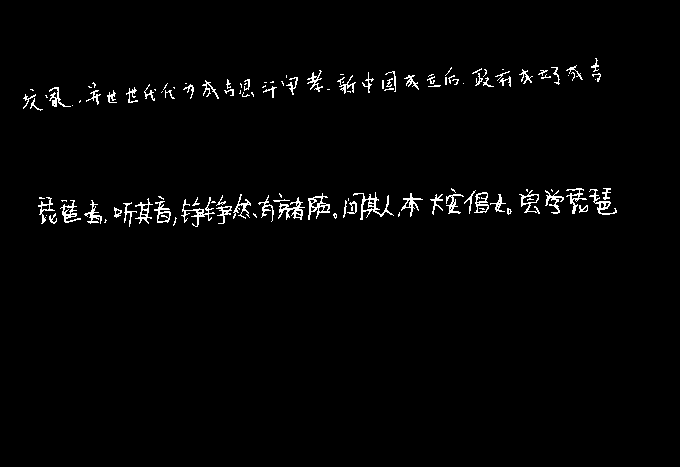 坟冢,并世世代代为成吉思汗守孝.新中国成立后.政府成立了成吉
琵琶者,听其音,铮铮然、有京都声。问其人,本长安倡女。尝学琵琶